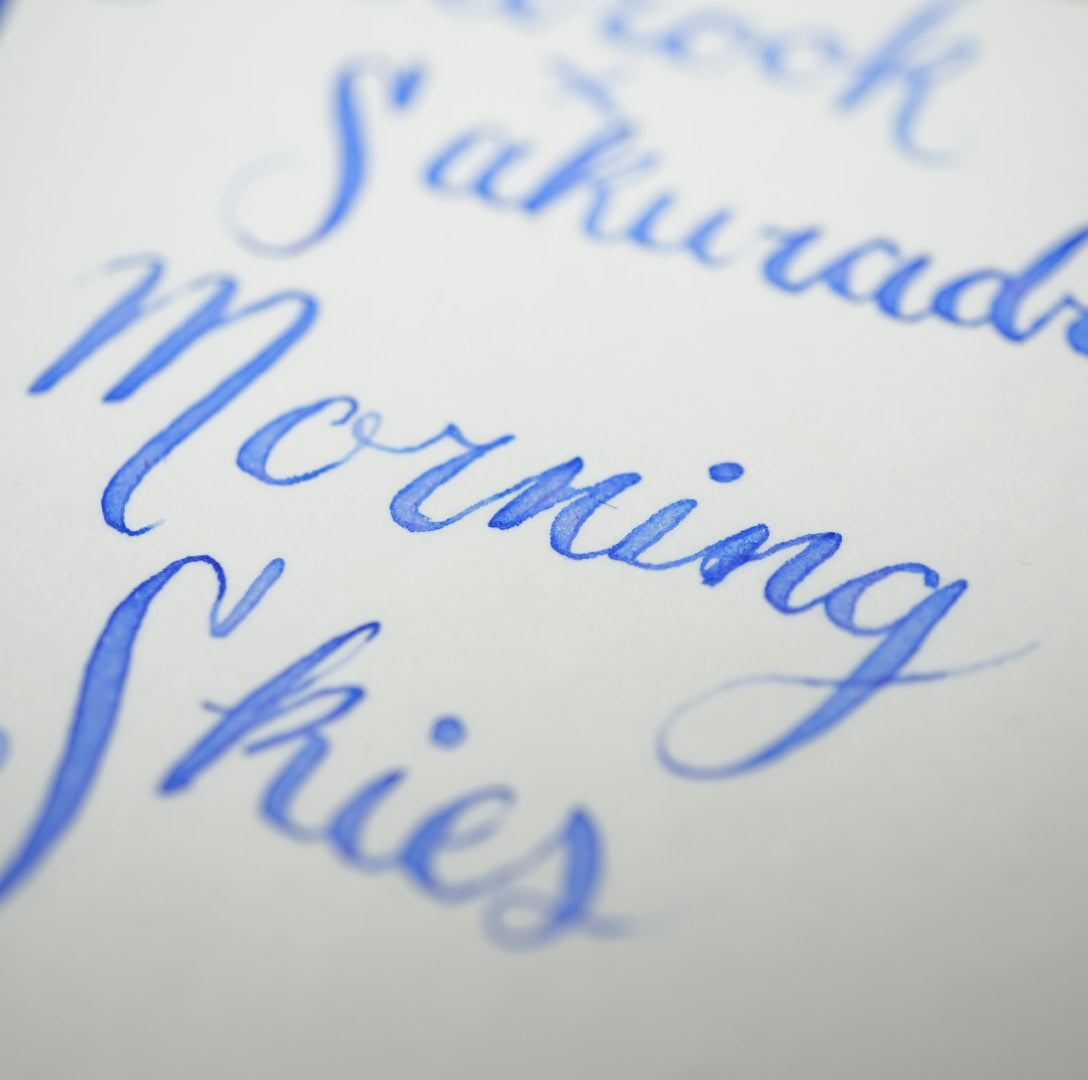 Sakurad
Morning
Skies